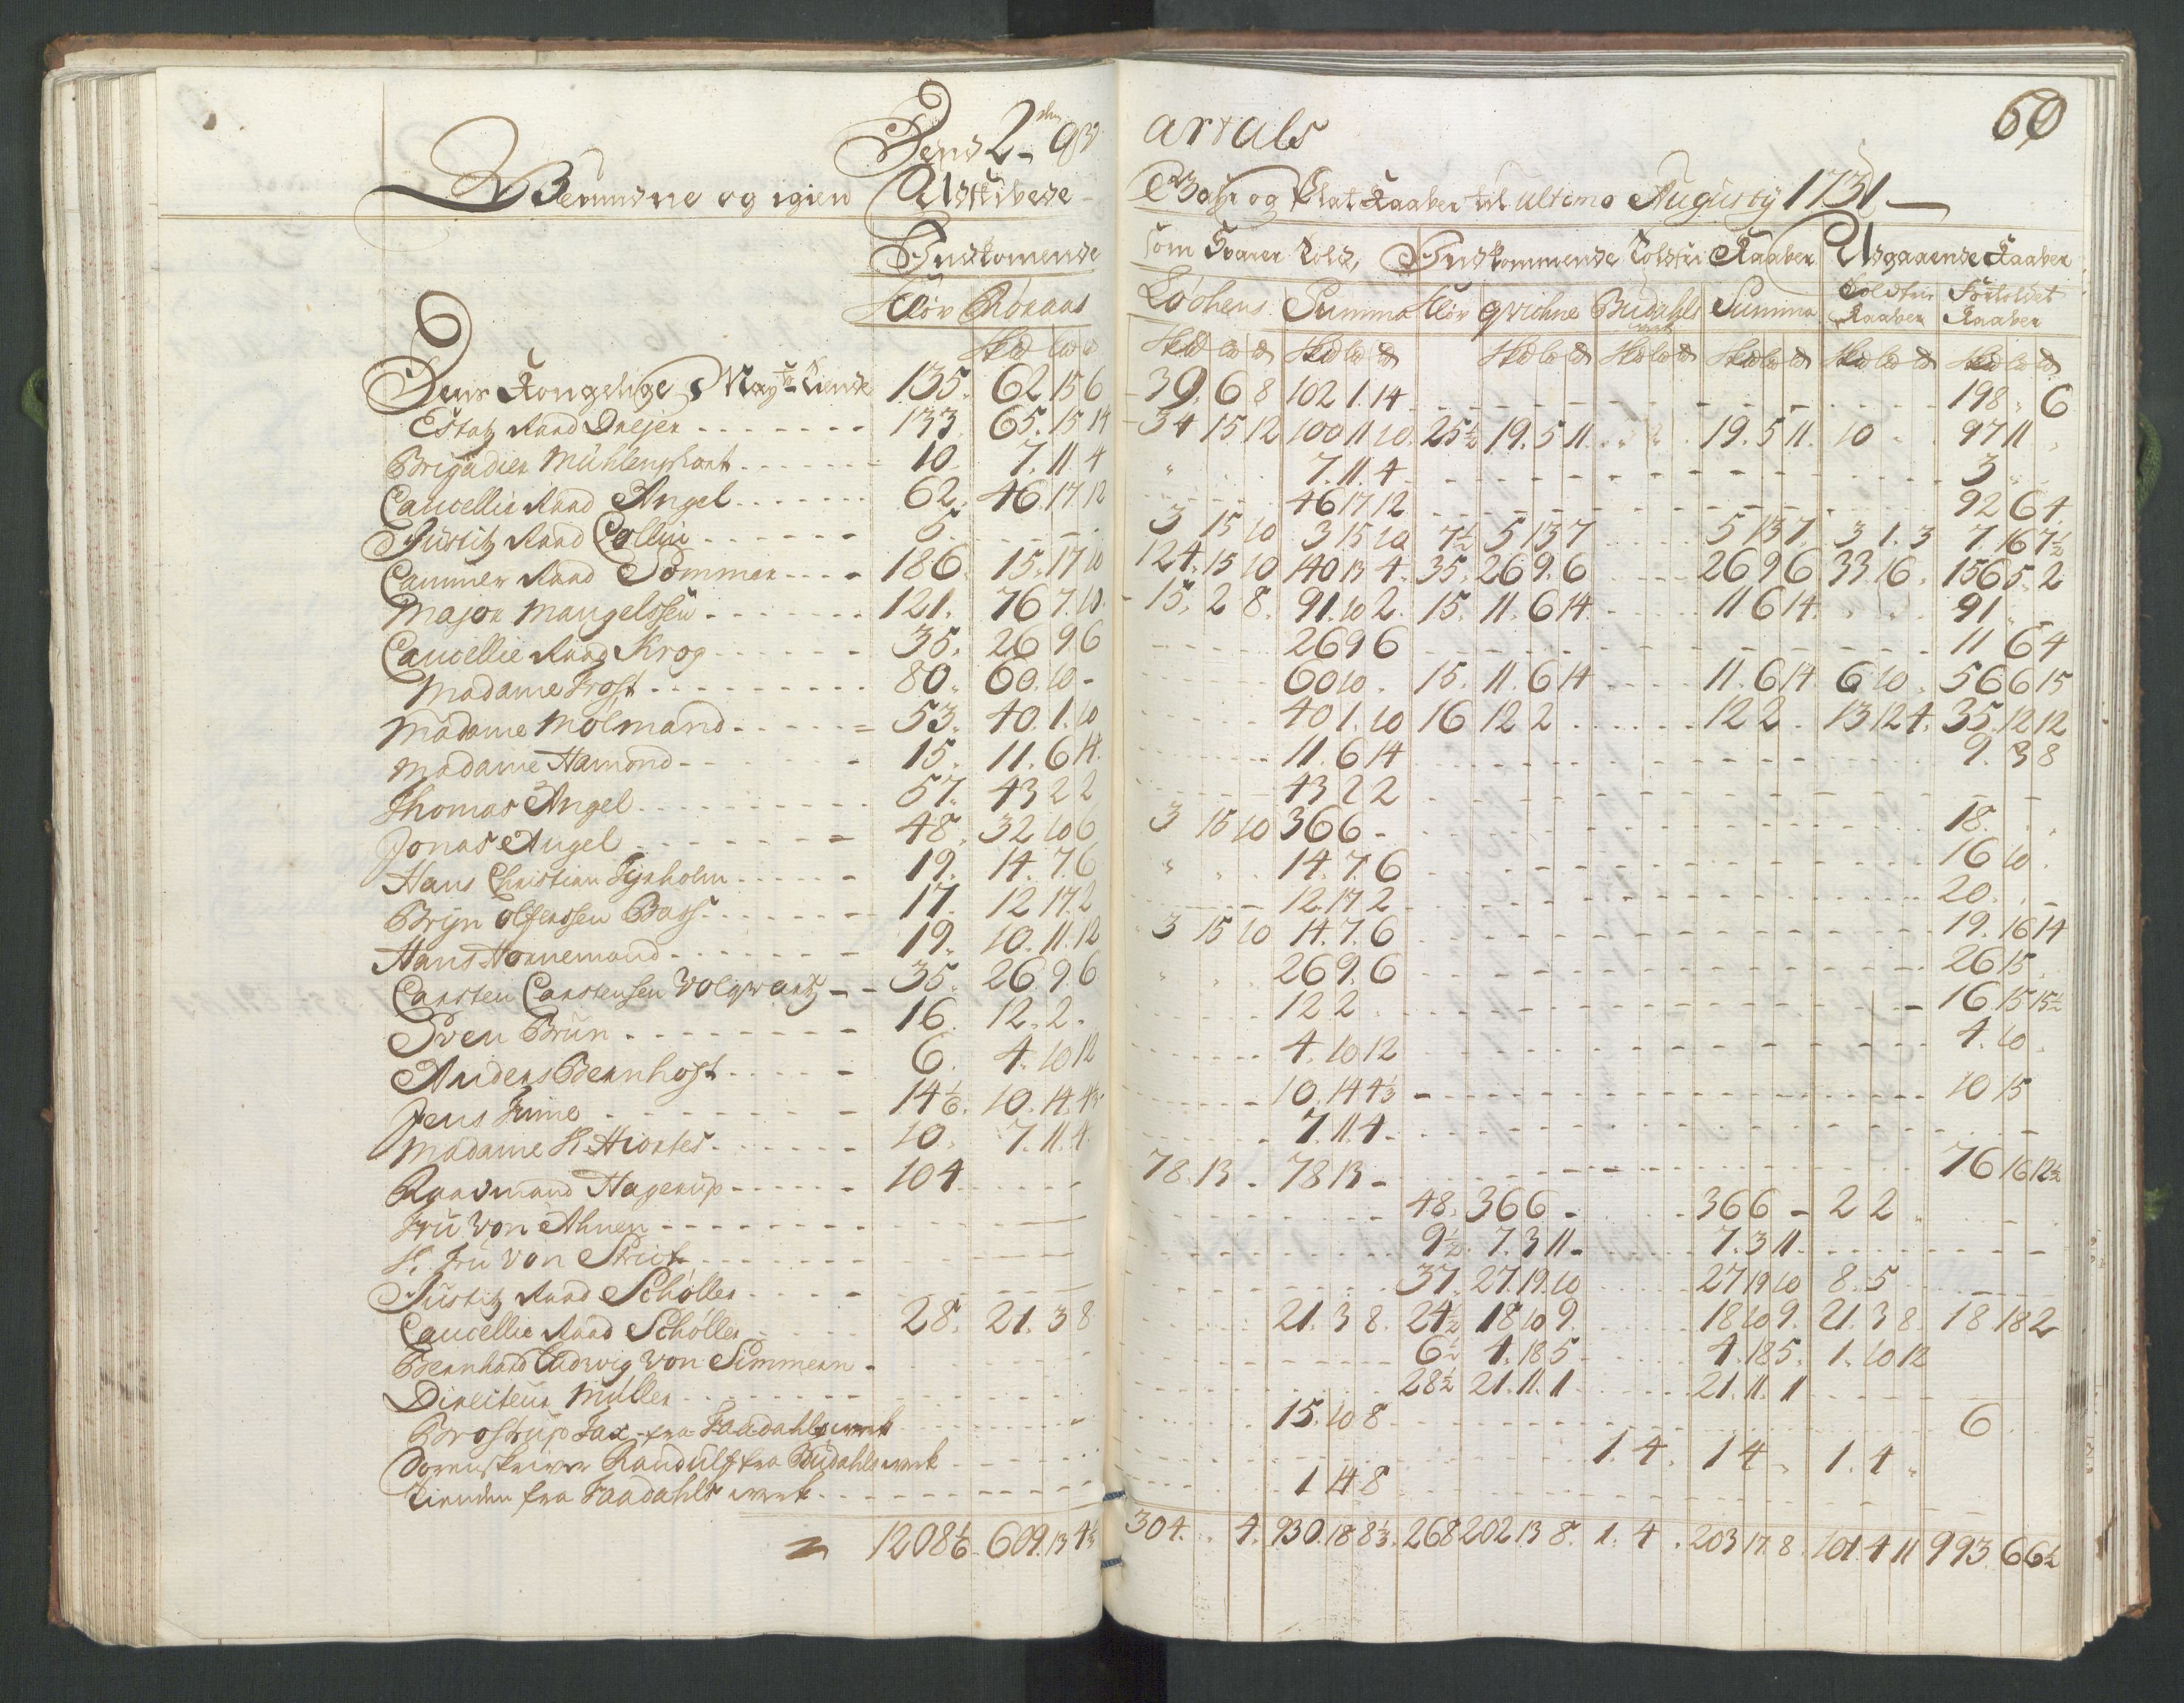 60
Dend 2den Qvartals
og igien Udskibede Gahr og Plat Kaaber til ultimo Augusty 1731
Indkomende som Svarer Told, Indkommende Toldfri Kaaber Udgaaende Kaaber
Kløv Röraas Löchens Summa Kløv qvichne Budahls werk Summa Toldfrie Kaaber Fortoldet Kaaber
Skd lb d Skd lb d Skd lb d Skd lb d Skd lb d Skd lb d Skd lb d Skd lb d
Dens Kongelige Mayts Tiende 135. 62 15 6 39. 6 8 102 1. 14 198 „ 6
Estatz Raad Dreyer 133 65. 15 14 34 15 12 100 11 10 25½ 19. 5 11 „ „ 19. 5 11. 10 97 11 „
Brigadier Mühlenphort 10. 7. 11. 4 „ 7. 11. 4 3
Cancellie Raad Angel 62. 46. 17 12 46 17 12 92 6 4
Justitz Raad Collin 5 3 15 10 3 15 10 7½ 5 13 7 5 13 7 3 1. 3 7. 16 7½
Cammer Raad Sommer 186. 15. 17 10 124. 15 10 140 13 4. 35. 26 9. 6 26 9 6 33 16. 156 5. 2
Major Mangelssen 121. 76 7. 10. 15. 2 8. 91. 10 2. 15. 11. 6 14 11 6 14. 91
Cancellie Raad Krog 35. 26 9 6 26 9 6 11 6 4
Madame Frost 80. 60. 10 - 60 10. 15. 11. 6 14 11. 6 14 6 10. 56 6 15
Madame Mölmand 53. 40. 1. 10 40 1. 10 16 12 2 12 2. 13 12 4. 35. 12 12
Madame Hamond 15. 11. 6 14. 11. 6 14 9. 3 8
Thomas Angel 57. 43 2 2 43 2 2
Jonas Angel 48. 32 10 6 3 15 10 36 6 - 18.
Hans Christian Tyrholm 19. 14. 7. 6 „ 14. 7. 6 16 10.
Bryn Olferssen Bass 17. 12 17. 2 12. 17 2 20.
Hans Hornemand 19. 10. 11. 12 3 15 10 14. 7. 6 19. 16 14
Carsten Carstensen Volqvartz 35. 26 9. 6 „ 26 9. 6 26 15.
Sven Brun 16. 12. 2. 12 2 16 15 15½
Anders Bernhoft 6. 4. 10 12 4. 10 12 4. 10.
Jens 14⅙. 10. 14. 4⅓ 10. 14 4⅓ 10 15
Madame Hiortes 10. 7. 11. 4 7. 11. 4
Raadmand Hagerup 104 78. 13 - 78 13 - 76 16 12½
Fru Von Ahnen 48. 36 6 - 36 6 - 2 2 „
Fru Von 9½. 7. 3 11 - 7. 3 11.
Justitz Raad Schöller 37. 27. 19. 10 27 19 10 8. 5
Cancellie Raad Schöller 28. 21. 3 8 21. 3 8. 24½ 18 10 9. 18 10 9. 21. 3 8. 18 18 2
Bernhard Ludwig Von Simmern 6½ 4. 18 5 4. 18 5. 1. 10 12
Directeur Müller 28½ 21. 11. 1 21. 11. 1
Brostrup Fax fra Faadahls werk 15. 10 8 6
Sorenskriver Randulf fra Budahls werk 1. 4. 1 4 „ 1. 4 „
Tienden fra Faadahls werk 1 14 8
1208⅙. 609. 13 4⅓ 304. „ 4. 930. 18 8⅓. 268 202 13 8. 1. 4. 203 17. 8. 101. 4 11 993. 6 6½